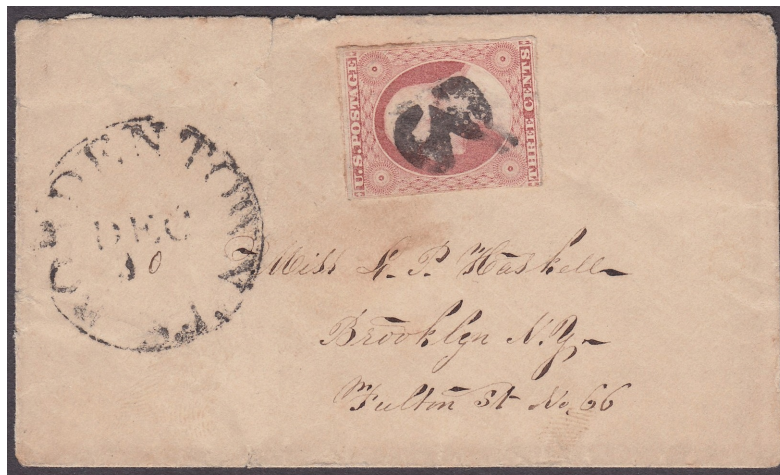 U.S. POSTAGE
THREE CENTS
BORDENTOWN
DEC
Miss
P. Haskell
Brooklyn N.Y.
Fulton St No. 66